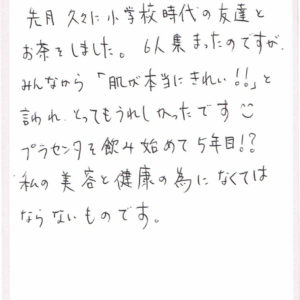 先月 久々に小学校時代の友達と
お茶をしました。6人集まったのですが、
みんなから「肌が本当にきれい!!」と
言われ、とってもうれしかったです
プラセンタを飲み始めて5年目!?
私の美容と健康の為になくては
ならないものです。